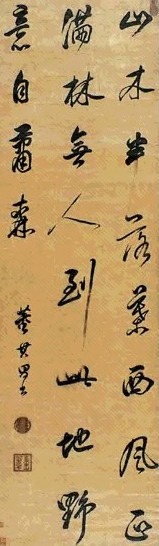 山木半落葉西風正
滿林無人到此地野
意自蕭森
董其昌